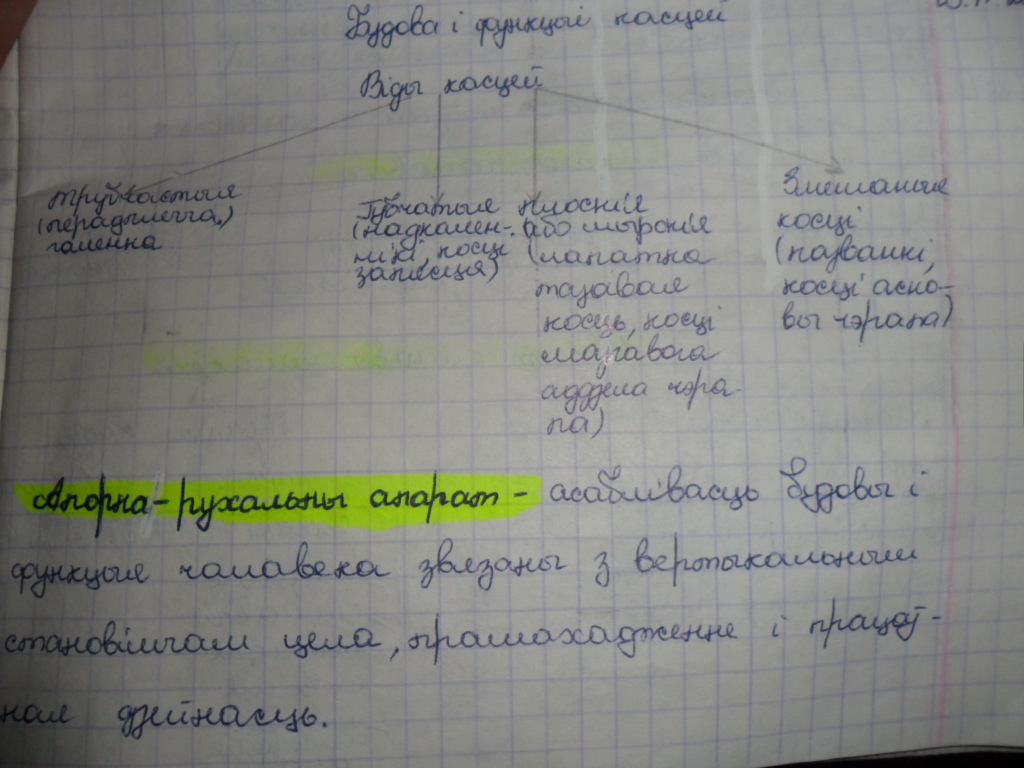 Будова і функцыі касцей
Віды касцей
трубчастыя
(перадплечча,)
галенка
Губчатыя
(надкален-
нікі, косці
запясця)
плоскія
або шырокія
(лапатка
тазавая
косць, косці
мазгавога
аддзела чэра-
па)
Змешаныя
косці
(пазванкі,
косці асно-
вы чэрапа)
Апорна-рухальны апарат - асаблівасць будовы і
функцыя чалавека звязаны з вертыкальным
становішчам цела, прамахаджэнне і працоў-
ная дзейнасць.